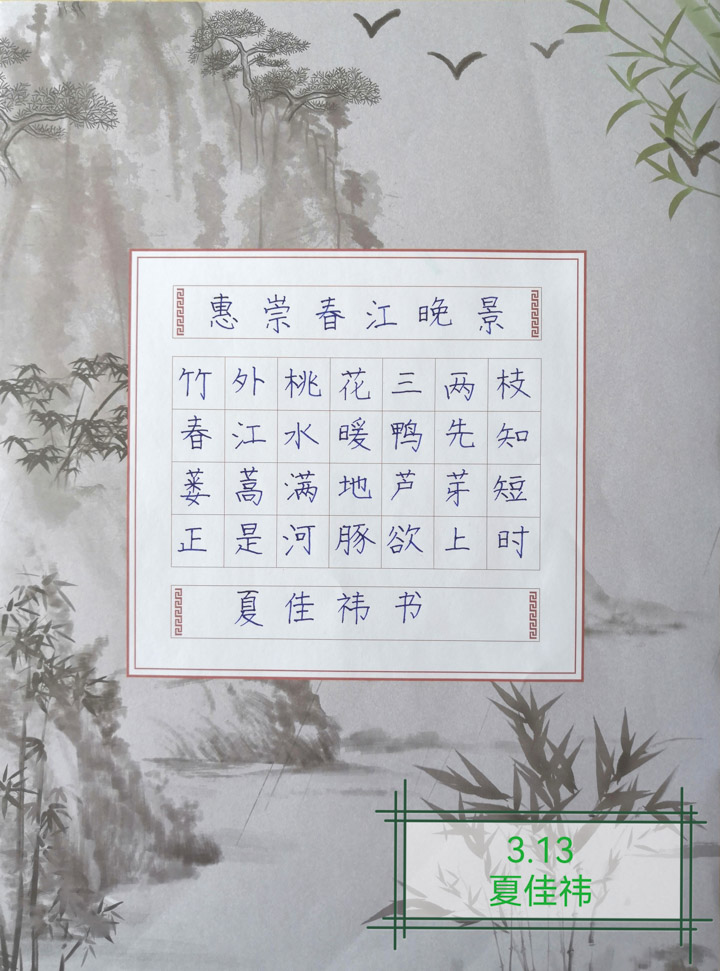 惠崇春江晚景
竹外桃花三两枝
春江水暖鸭先知
蒌蒿满地芦芽短
正是河豚欲上时
夏佳祎书
3.13
夏佳祎